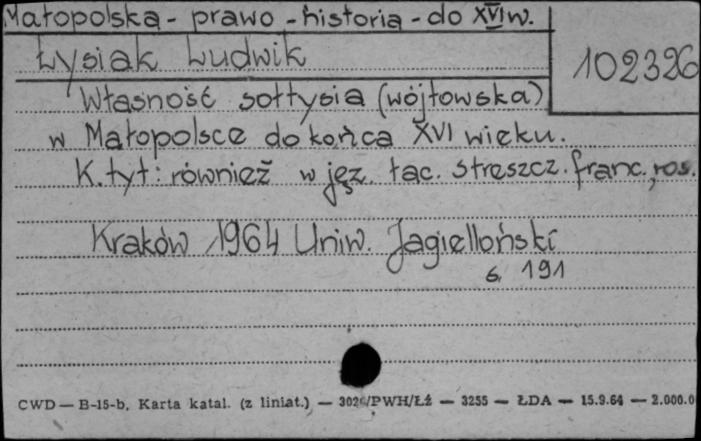 Małopolska - prawo - historia - do XVI w.
Łysiak Ludwik
102326
Własność sołtysia (wójtowska)
w Małopolsce do końca XVI wieku.
K. tyt: również w jęz. łac. streszcz. franc., ros.
Kraków 1964 Uniw. Jagielloński
s. 191
CWD — B-15-b, Karta katal. (z liniat.) — /PWH/Łź — 3255 — ŁDA — 15.9.64 — 2.000.0